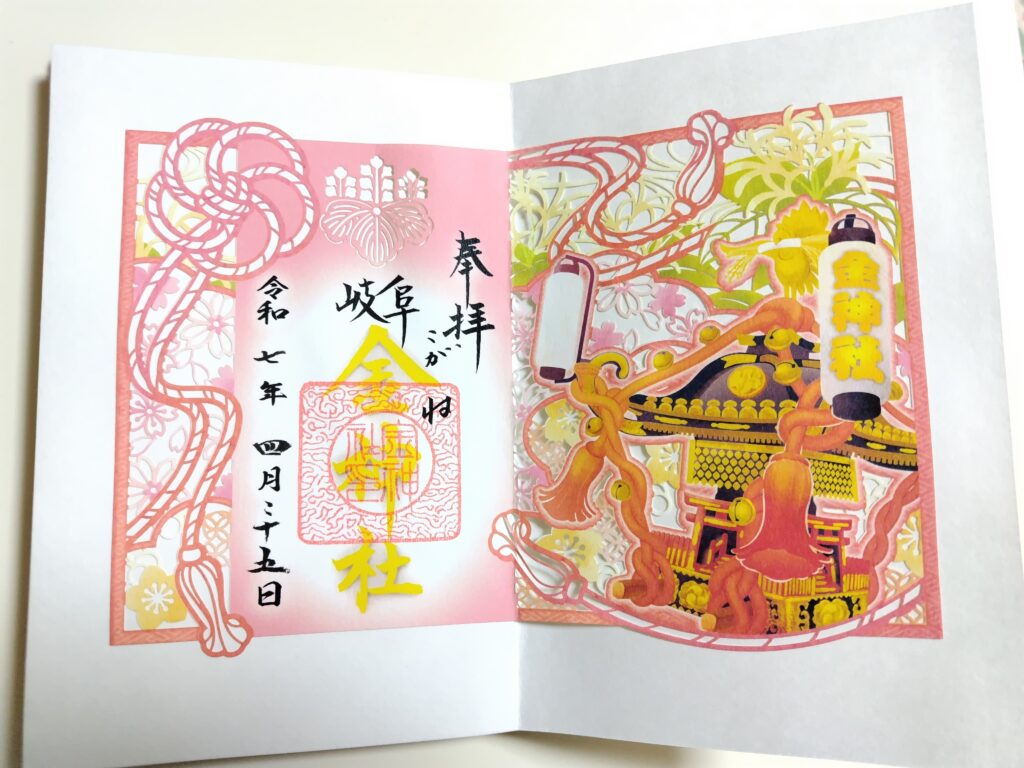 金神社
奉拝
岐阜
こがね
金神社
令和七年 四月二十五日